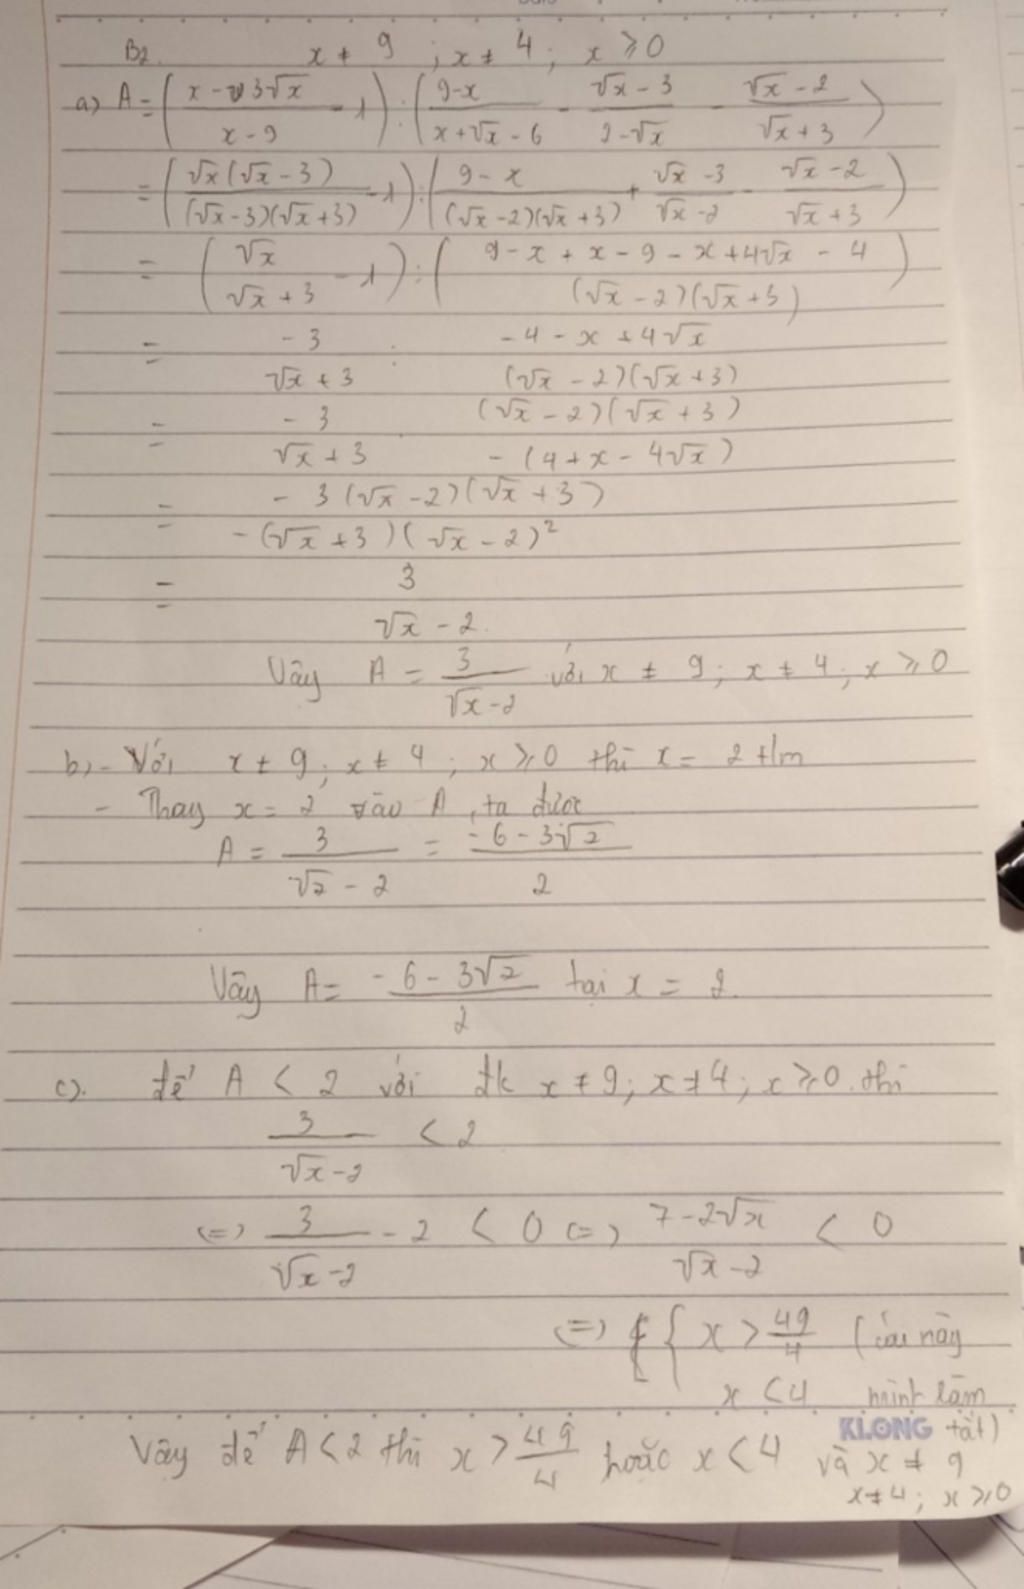 B2. x ≠ 9 ; x ≠ 4 ; x ≥ 0
a) A = (x - 3√x / x - 9 - 1) : (9-x / x+√x - 6 - √x - 3 / 2-√x - √x - 2 / √x + 3)
= (√x(√x - 3) / (√x-3)(√x+3) - 1) : (9 - x / (√x-2)(√x+3) + √x - 3 / √x - 2 - √x - 2 / √x + 3)
= (√x / √x + 3 - 1) : (9 - x + x - 9 - x + 4√x - 4 / (√x - 2)(√x + 3))
= - 3 / √x + 3 : - 4 - x + 4√x / (√x - 2)(√x + 3)
= - 3 / √x + 3 . (√x - 2)(√x + 3) / - (4 + x - 4√x)
= - 3 (√x - 2)(√x + 3) / - (√x + 3)(√x - 2)²
= 3 / √x - 2.
Vậy A = 3 / √x - 2 với x ≠ 9 ; x ≠ 4 ; x ≥ 0
b) - Với x ≠ 9 ; x ≠ 4 ; x ≥ 0 thì x = 2 t/m
- Thay x = 2 vào A, ta được
A = 3 / √2 - 2 = - 6 - 3√2 / 2
Vậy A = - 6 - 3√2 / 2 tại x = 2.
c). để A < 2 với đk x ≠ 9 ; x ≠ 4 ; x ≥ 0 thì
3 / √x - 2 < 2
(=) 3 / √x - 2 - 2 < 0 (=) 7 - 2√x / √x - 2 < 0
(=) { x > 49/4 (cái này
x < 4 mình làm
KLONG tắt)
Vậy để A < 2 thì x > 49/4 hoặc x < 4 và x ≠ 9
x ≠ 4 ; x ≥ 0